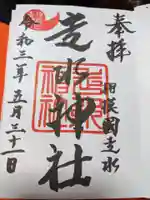 奉拝
相模國走水
走水神社
令和三年五月三十一日